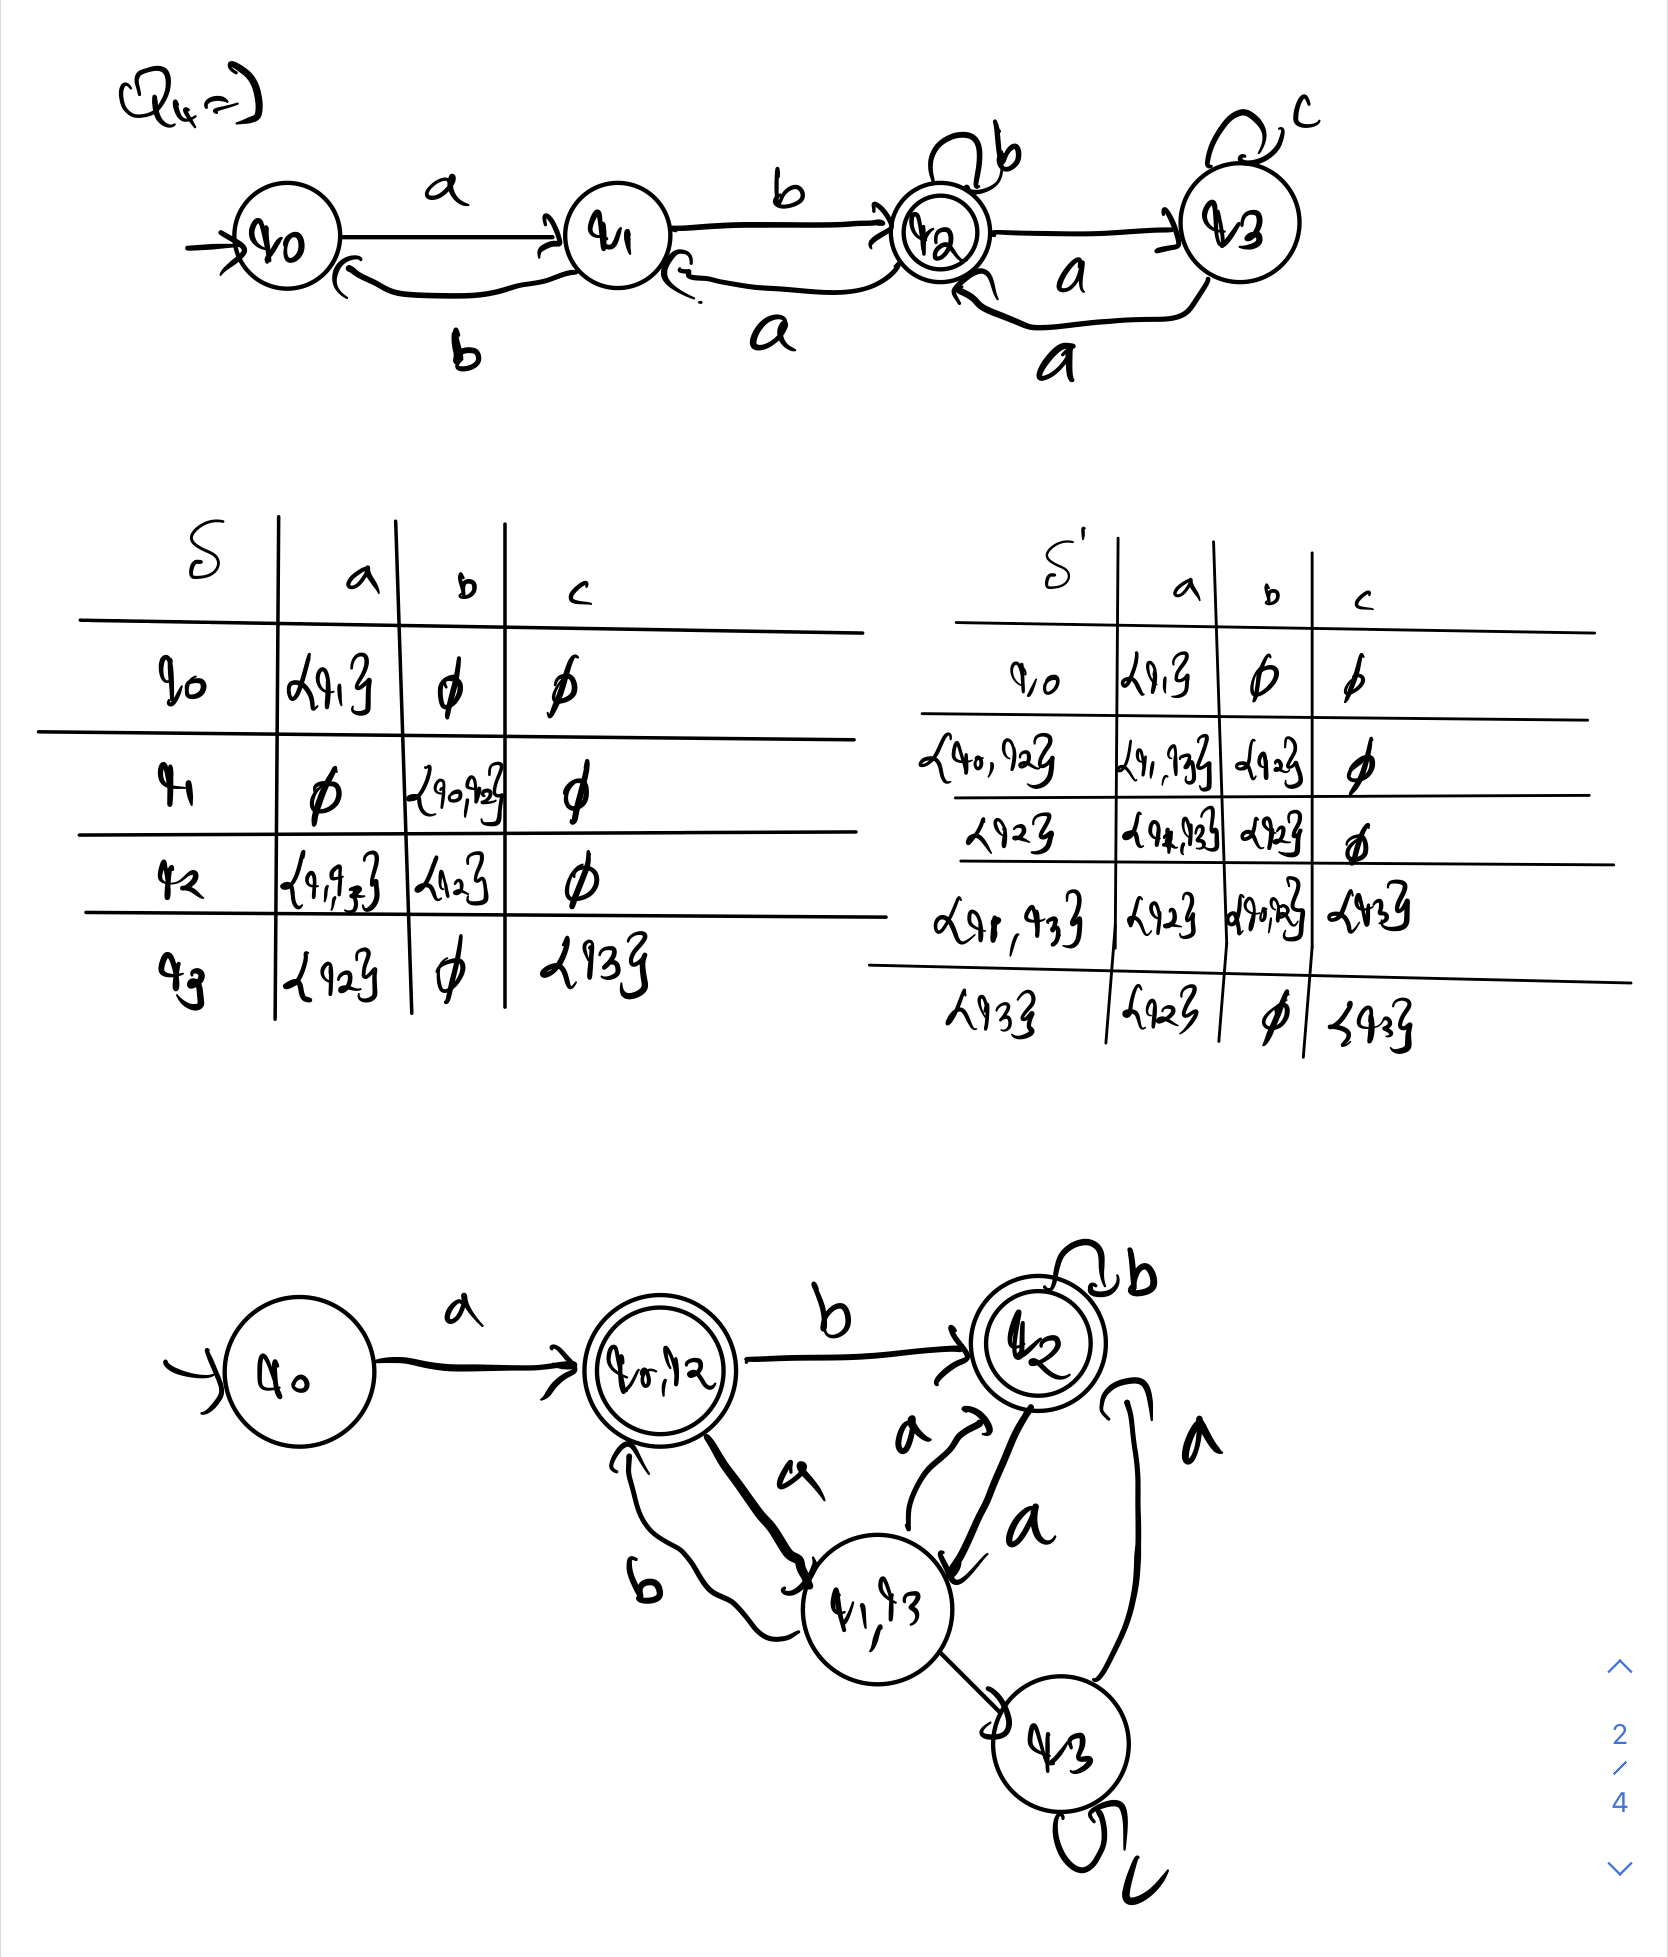 Q4 =>
a b b c
q0 q1 q2 q3
b a a a
δ a b c
q0 {q1} ϕ ϕ
q1 ϕ {q0,q2} ϕ
q2 {q1,q3} {q2} ϕ
q3 {q2} ϕ {q3}
δ' a b c
q0 {q1} ϕ ϕ
{q0,q2} {q1,q3} {q2} ϕ
{q2} {q1,q3} {q2} ϕ
{q1,q3} {q2} {q0,q2} {q3}
{q3} {q2} ϕ {q3}
a b b
q0 q0,q2 q2
a a a a
b q1,q3
q3
c
2
/
4